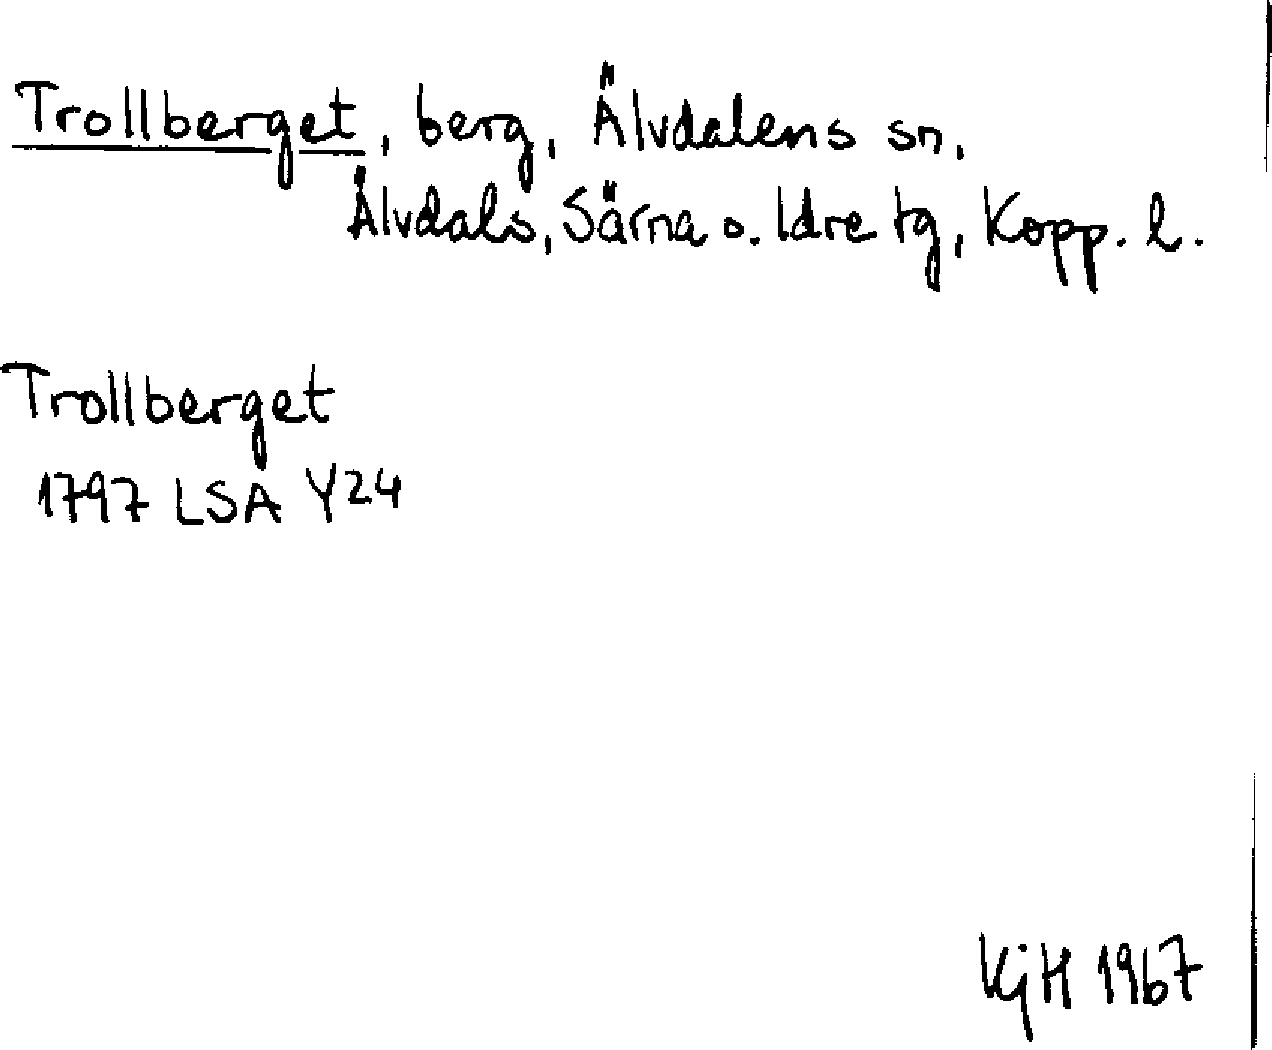 Trollberget, berg, Älvdalens sn,
Älvdals, Särna o. Idre tg, Kopp. l.
Trollberget
1797 LSA Y24
KjH 1967